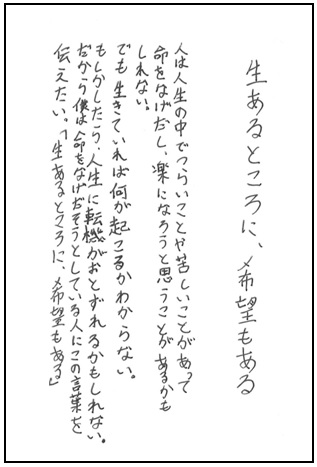 生あるところに、希望もある
人は人生の中でつらいことや苦しいことがあって
命をなげだし、楽になろうと思うことがあるかも
しれない。
でも生きていれば何が起こるかわからない。
もしかしたら、人生に転機がおとずれるかもしれない。
だから僕は命をなげだそうとしている人にこの言葉を
伝えたい。「生あるところに、希望もある」